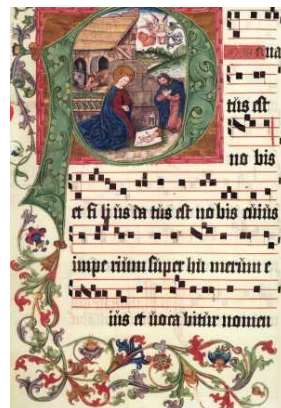 na
tus est
no bis
et fi li us da tus est no bis cuius
impe rium super hu merum e
ius et voca bitur nomen